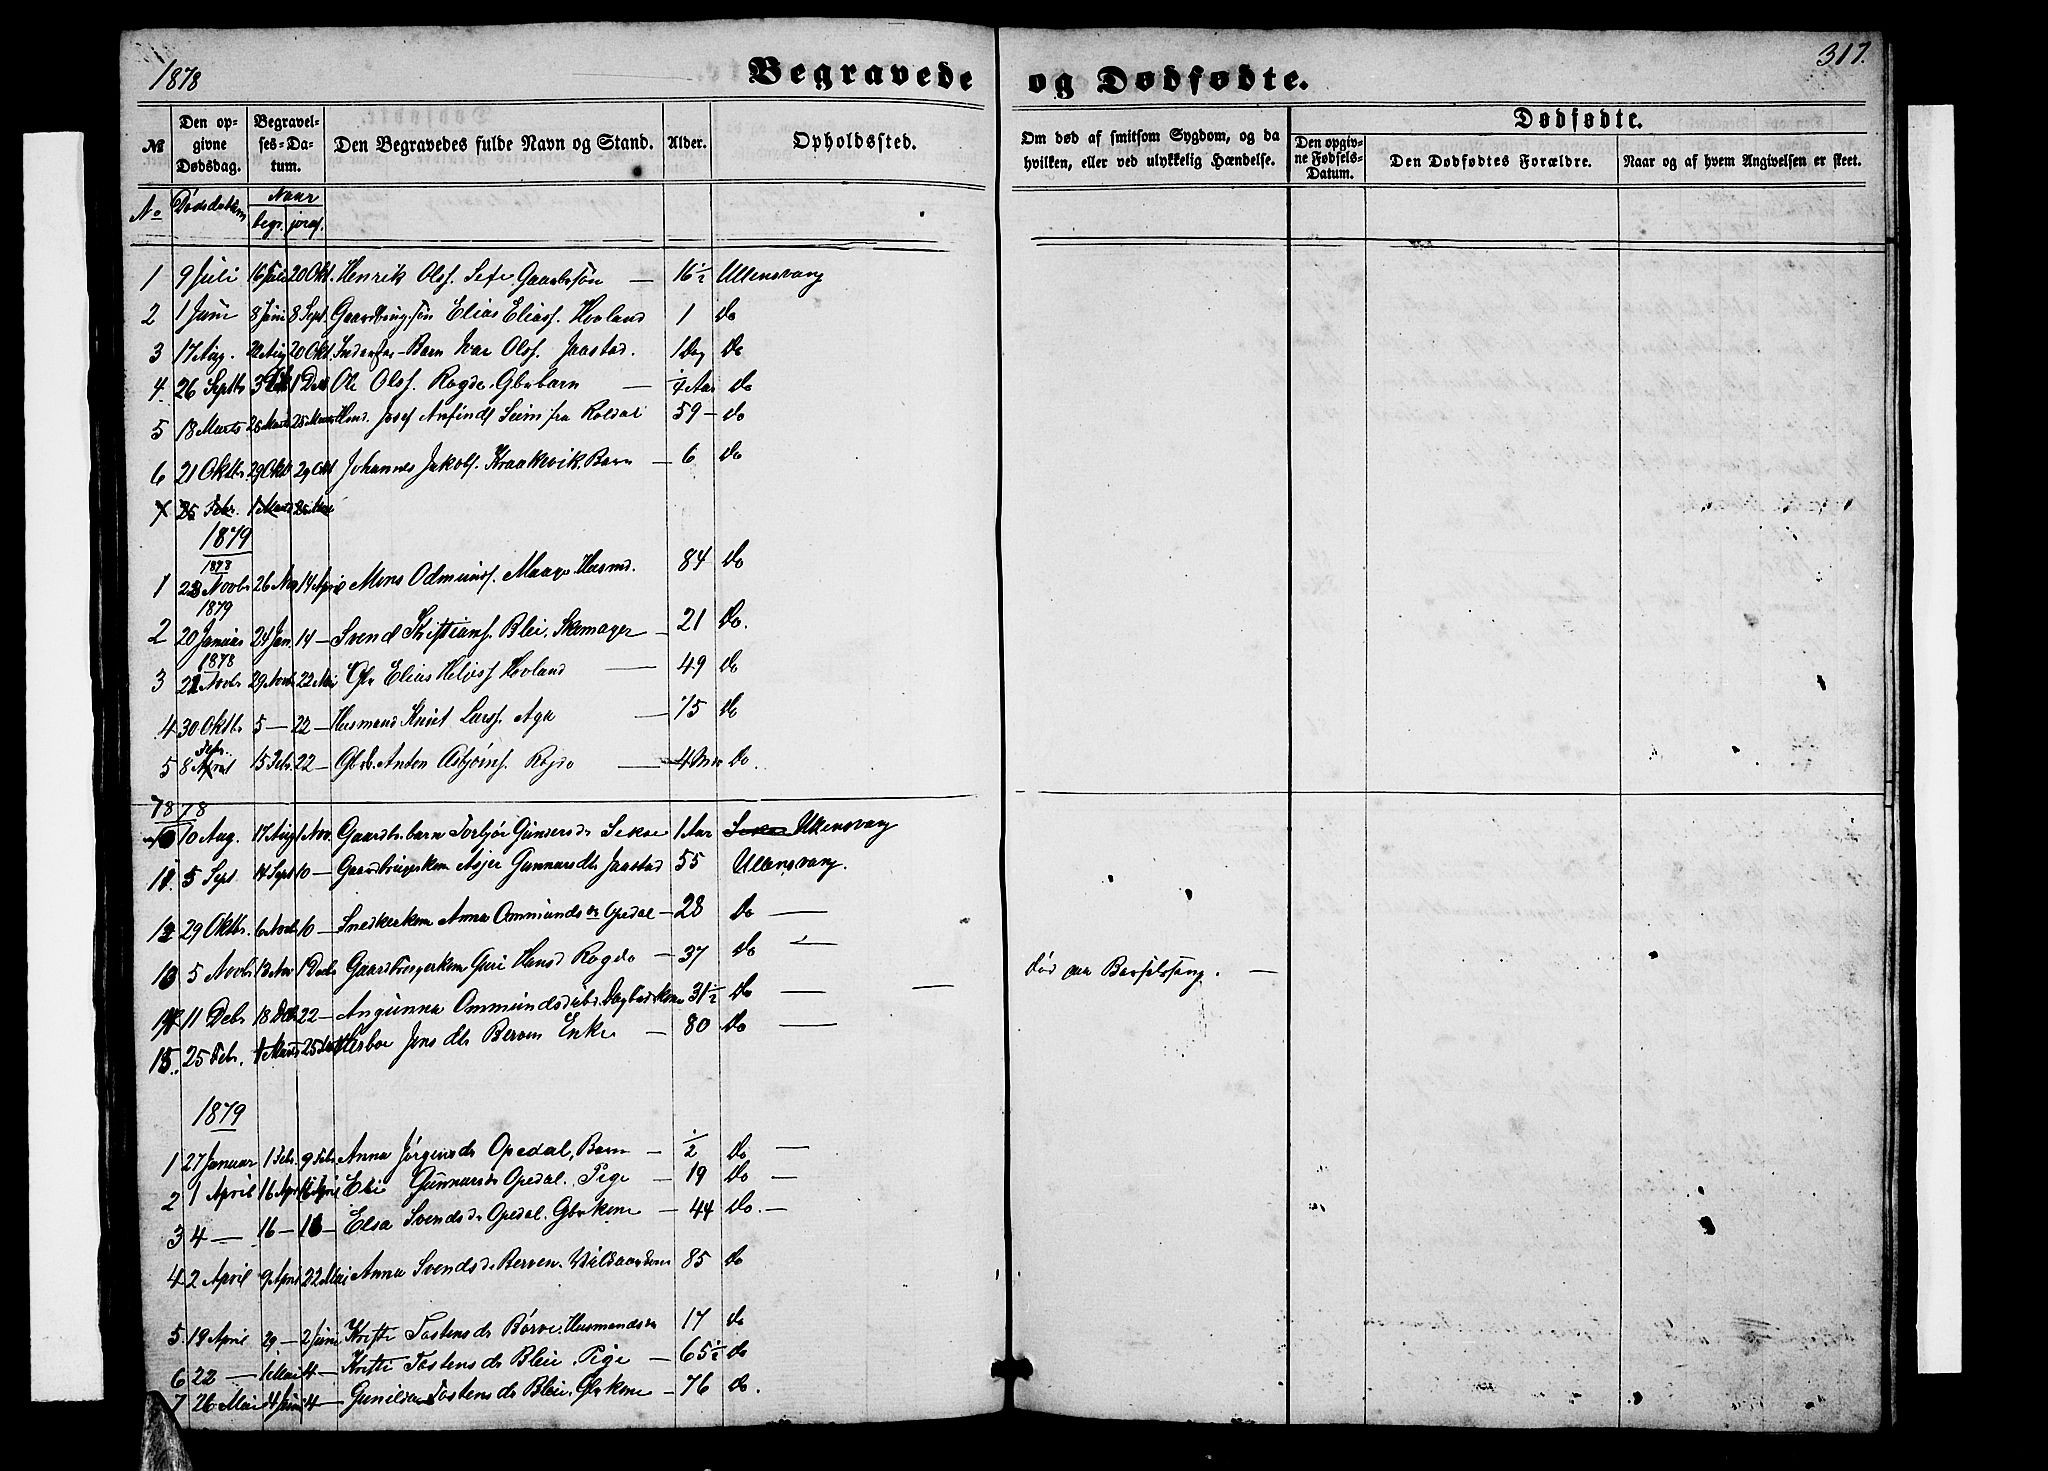 1878
Begravede og Dødfødte.
317.
№ Den opgivne Dødsdag. Begravelses-Datum. Den Begravedes fulde Navn og Stand. Alder. Opholdssted. Om død af smitsom Sygdom, og da hvilken, eller ved ulykkelig Hændelse. Dødfødte. Den opgivne Fødsels-Datum. Den Dødfødtes Forældre. Naar og af hvem Angivelsen er skeet.
No Dødsdatum Naar begr. jordf.
1 9 Juli 16 Juli 20 Okt. Henrik Olsf. Sexe Gaardbrsøn — 16½ Ullensvang
2 1 Juni 8 Juni 8 Sept. Gaardbrug. søn Elias Eliasf. Hovland 1 do
3 17 Aug. 22 Aug 20 Okt. Barn Ivar Olsf. Jaastad. 1 Dag Do
4. 26 Septbr 1 Ole Olsf. Rogde Gbrbarn — ¼ Aar do
5 18 Marts 25 Marts Husmd. Josef Arfinds Seim fra Røldal 59 — do
6 21 Oktbr. 29 Okt 29 Okt Johannes Jakobsf. Kraakevik. Barn — 6 do
7 25 Febr. 1 Marts
1879
1878
1 Novbr 26 Nov 14 April Mons Odmundsf. Maage Husmd. 84 do
1879
2 20 Januar 24 Jan 14 — Svend Kristiansf. Blei. Skomager — 21 Do.
1878
3 Novbr 29 Novb 22 Mai Gbr Elias Helgesf Hovland — 49 do
4 30 Oktbr 5 — 22 — Husmand Knut Larsf. Aga — 75 do
Febr.
5 8 April 15 Febr. 22 — Gbrb. Anton Asbjørnsf. Rogde — 4 Do.
1878
10 10 Aug. 17 Aug 1 Nov. Gaardbr. barn Torbjør Gunnarsdr Sekse 1 Aar Sekse Ullensvang
11 5 Sept. 14 Sept 10 — Gaardbrugerkone Gunnarsdtr Jaastad 55 Ullensvang.
12 29 Oktbr. 6 Novb 10 — Snedkerkone Anna Ommundsdr Opedal — 28 Do —
13 5 Novbr 13 Nov 1 Decbr Gaardbrugerkone Guri Hansd Rogde — 37 do — død paa Barselseng. —
14 11 Debr 18 Deb 22 — Angunna Ommundsdtr. 31½ Do — —
15. 25 Febr. 1 Marts Jonsdtr Berven Enke — 80 Do —
1879
1 27 Januar 1 Febr. 9 Febr Anna Jørgensdr Opedal, Barn — ½ Do —
2 1 April 16 April 16 April Eli Gunnarsdr Opedal. Pige — 19 Do —
3 4 — 16 — 16 — Elsa Svendsdr Opedal. Gbrkone — 44 Do. —
4 2 April 9 April 22 Mai Anna Svendsdr Berven. 85 do
5 19 April 29 — 2 Juni Kristi Tostensdr Børve. Husmandsdr 17 do
6 22 — 1 Mai 4 — Kristi Tostensdr Blei. Pige — 65½ do
7 26 Mai 4 Juni 4 — Gunilda Tostensdr Blei. Gbrkone — 76 do.